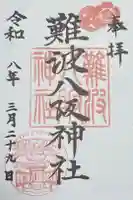 奉拝
難波八阪神社
令和八年三月二十九日